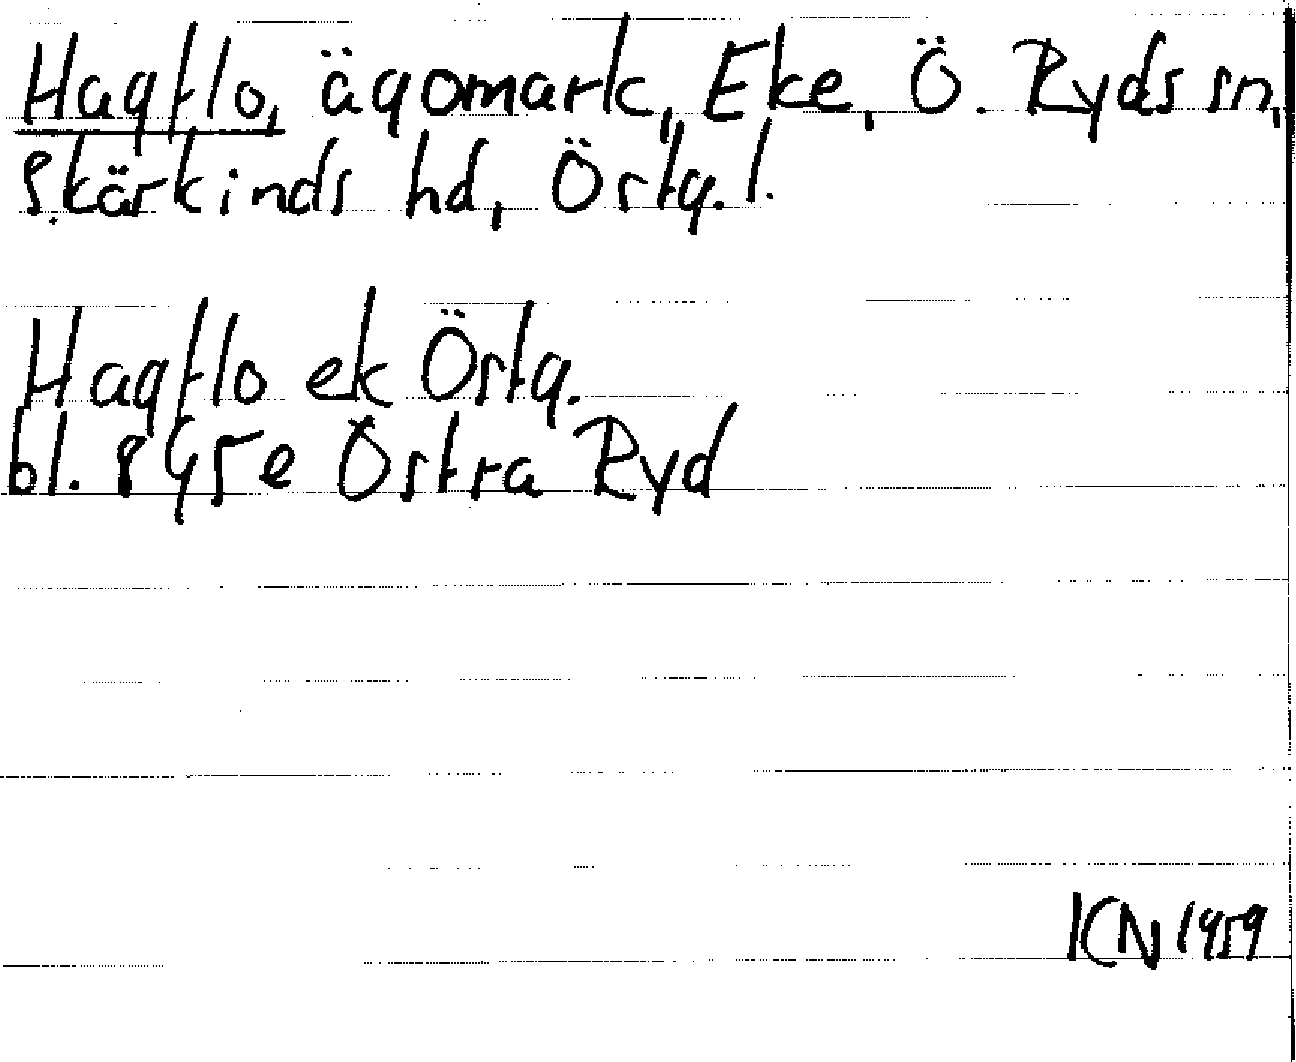 Hagflo, ägomark, Eke, Ö. Ryds sn,
Skärkinds hd, Östg. l.
Hagflo ek Östg.
bl. 8G5e Östra Ryd
KN 1959